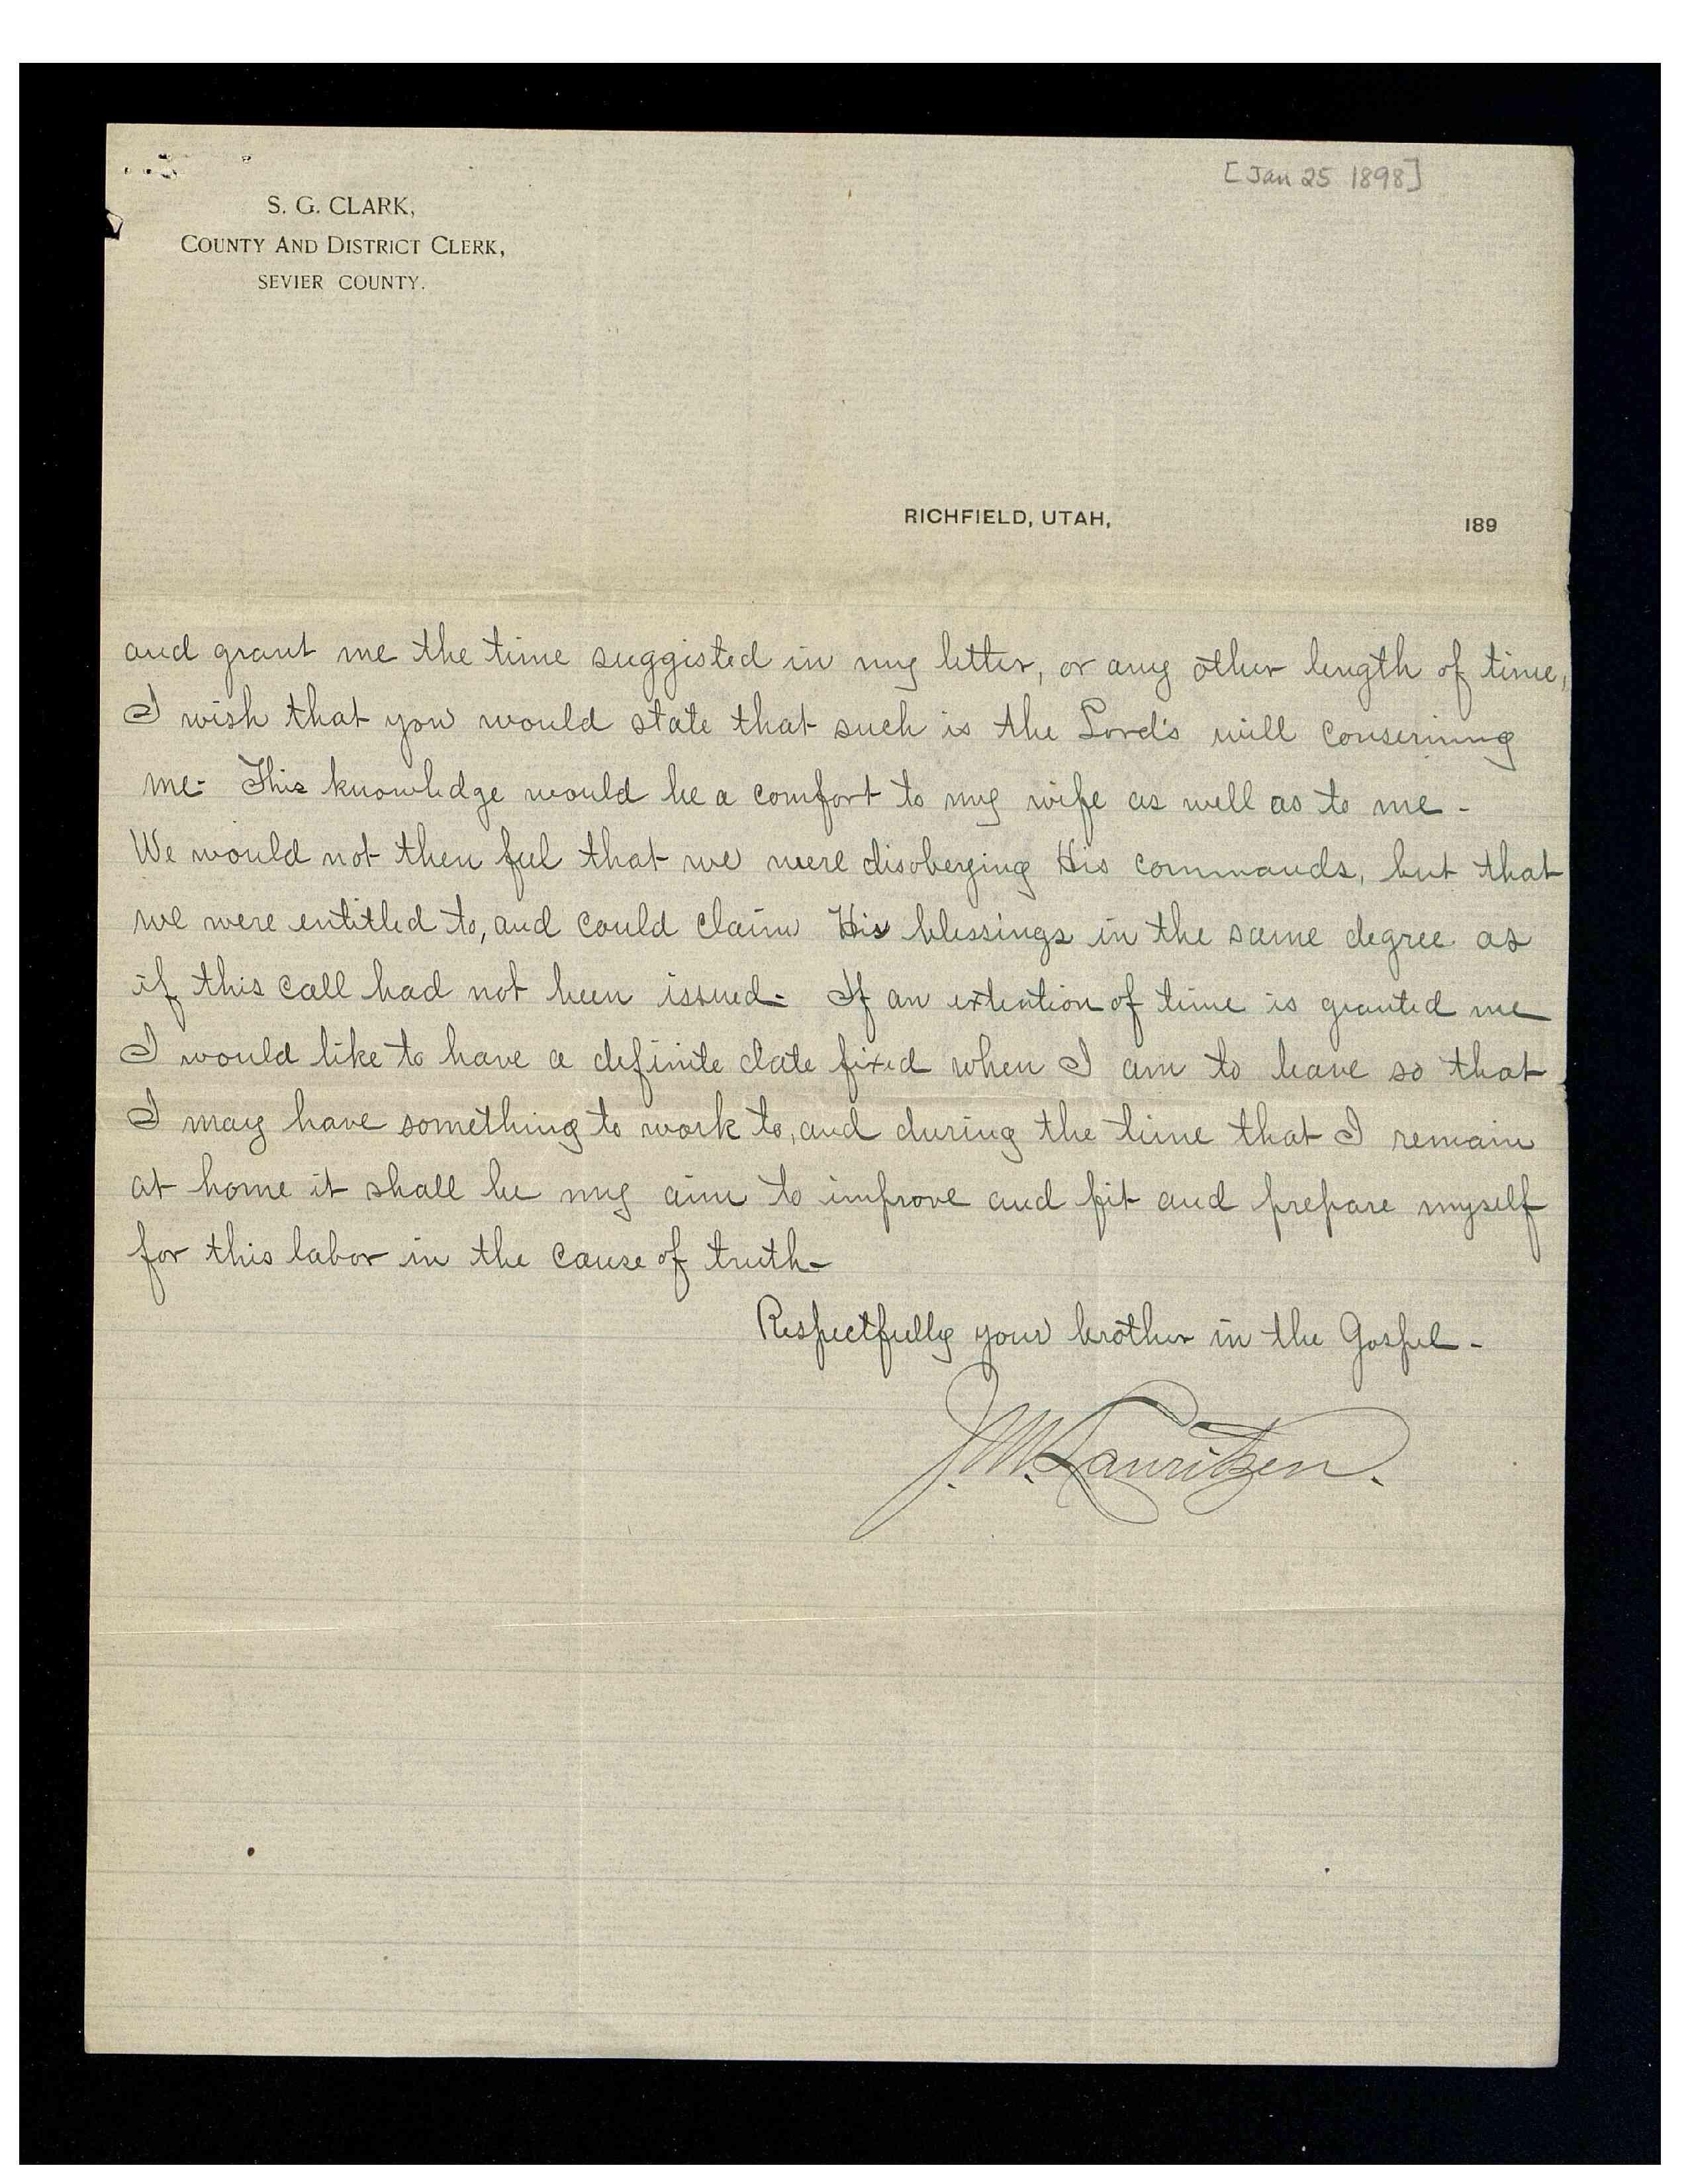 [Jan 25 1898]
S. G. CLARK,
COUNTY AND DISTRICT CLERK,
SEVIER COUNTY.
RICHFIELD, UTAH, 189
and grant me the time suggisted in my letter, or any other length of time,
I wish that you would state that such is the Lord's will conserning
me- This knowledge would be a comfort to my wife as well as to me-
We would not then feel that we were disobeying His commands, but that
we were entitled to, and could claim His blessings in the same degree as
if this call had not been issued- If an extention of time is granted me
I would like to have a definite date fixed when I am to leave so that
I may have something to work to, and during the time that I remain
at home it shall be my aim to improve and fit and prepare myself
for this labor in the cause of truth-
Respectfully your brother in the Gospel-
J. M. Lauritzen.